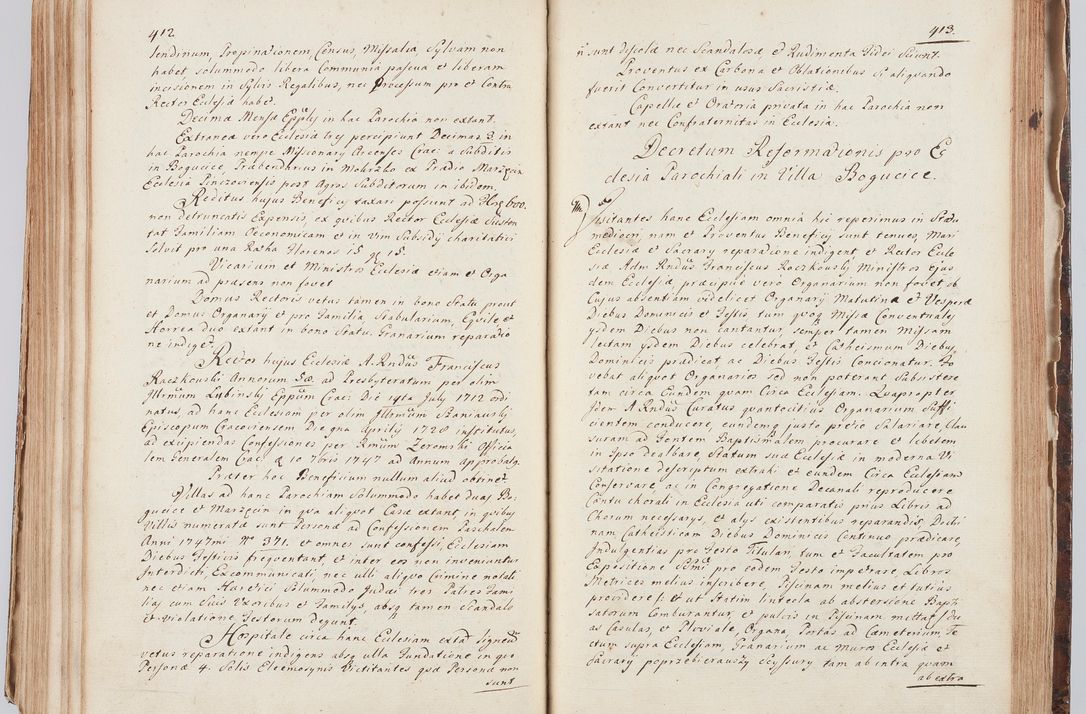 412
lendinum, Propinationem, Census, Missalia, Sylvam non
habet, solummodo libera Communia pascua et liberam
incisionem in Sylvis Regalibus, nec Processum pro et Contra
Rector Eclesiæ habet.
Decima Mensæ Eppłis in hac Parochia non extant.
Extranea vero Ecclesia try percipiunt Decimas 3 in
hac Parochia nempe Missionary Arcenses Crac: a Subditis
in Bogucice, Præbendarius in Mokrsko ex Prædio Marzęcin
Ecclesia Pinczoviensis post Agros Subditorum in ibidem.
Reditus hujus Beneficij taxari possunt ad
non detruncatis Expensis, ex quibus Rector Ecclesiæ Susten
tat Familiam Oeconomicam et in vim Subsidij charitativi
Solvit pro una Ratha Florenos 15 gr 15.
Vicarium et Ministros Ecclesiæ etiam et Orga
narium ad præsens non fovet
Domus Rectoris vetus tamen in bono Statu prout
et Domus Organarij et pro Familia, Stabularium, Equile, et
Horrea duo extant in bono Statu. Granarium reparatio
ne indiget.
Rector hujus Ecclesiæ A. Rndus Franciscus
Raczkowski Annorum ad Presbyteratum per olim
Illmum Lubinsky Eppum Crac: Die 14ta July 1712 ordi
natus, ad hanc Ecclesiam per olim Illmum Szaniawsky
Episcopum Cracoviensem De qna Aprily 1728 institutus,
ad excipiendas Confessiones per Rmum Zeromski Officia
lem Generalem Crac: d 10 7bris 1747 ad Annum approbatg.
Præter hoc Beneficium nullum aliud obtinet.
Villas ad hanc Parochiam Solummodo habet duas Bo
gucice et Marzęcin in qua aliquot Casæ extant in quibus
Villis numeratæ sunt Personæ ad Confessionem Paschalem
Anni 1747mi No 371. et omnes sunt confessi, Ecclesiam
Diebus Festivis freqventant, et inter eos non inveniuntur
Interdicti, Excommunicati, nec ulli aliquo Crimine notati
nec etiam Hæretici Solummodo Judæi tres Patres Fami
lias cum Suis Uxoribus et Familijs, absq tamen Scandalo
et violatione Festorum degunt.
Hospitale circa hanc Ecclesiam extat ligneum
vetus reparatione indigens absq ulla Fundatione in quo
Personæ 4. Solis Eleemosynis Victitantes quæ Personæ non
sunt
413.
n sunt Discolæ nec Scandalosæ et Rudimenta Fidei Sciunt.
Proventus ex Carbona et Oblationibus Si aliquando
fuerit Convertitur in usus Sacristiæ.
Capellæ et Oratoria privata in hac Parochia non
extant nec Confraternitas in Ecclesia.
Decretum Reformationis pro Ec
clesia Parochiali in Villa Bogucice.
Visitantes hanc Ecclesiam omnia hic reperimus in Statu
mediocri, nam et Proventus Beneficij sunt tenues, Mari
Ecclesiæ et Sacrary reparatione indigent et Rector Eccle
siæ Adm Rndus Franciscus Raczkowski Ministros ejus
dem Ecclesiæ, præcipue vero Organarium non fovet ob
Cujus absentiam videlicet Organarij Matutinæ et Vesperæ
Diebus Dominicis et Festis tum quoq Missæ Conventuales
ysdem Diebus non cantantur, semper tamen Missam
lectam ysdem Diebus celebrat, et Catheismum Diebus
Dominicis prædicat, ac Diebus Festis Concionatur. Fo
vebat aliquot Organarios sed non poterant Subsistere
tam circa Eundem quam Circa Ecclesiam. Quapropter
Idem A Rndus Curatus quantocitius Organarium Suffi
cientem conducere, eundemq justo pretio Salariare, Clau
suram ad Fontem Baptismalem procurare et libetem
in Ipso dealbare, Statum suæ Ecclesiæ in moderna Vi
sitatione descriptum extrahi et eundem Circa Ecclesiam
Conservare, ac in Congregatione Decanali reproducere
Cantu chorali in Ecclesia uti comparatis prius Libris ad
Chorum necessarys, et alys existentibus reparandis, Doctri
nam Catheisticam Diebus Dominicis Continuo prædicare,
Indulgentias pro Festo Titulari, tum et Facultatem pro
Expositione SSmi pro eodem Festo impetrare, Libros
Metrices melius inscribere, Piscinam melius et tutius
providere, et ut Statim linteola ab abstersione Bapti
satorum Comburantur, et pulvis in Piscinam mittat,
as Casulas, et Pluviale, Organa, Portas ad Cæmeterium Te
ctum supra Ecclesiam, Granarium ac Muros Ecclesiæ et
Sacrary poprzebierauszy Scyssury tam ab intra quam
ab extra